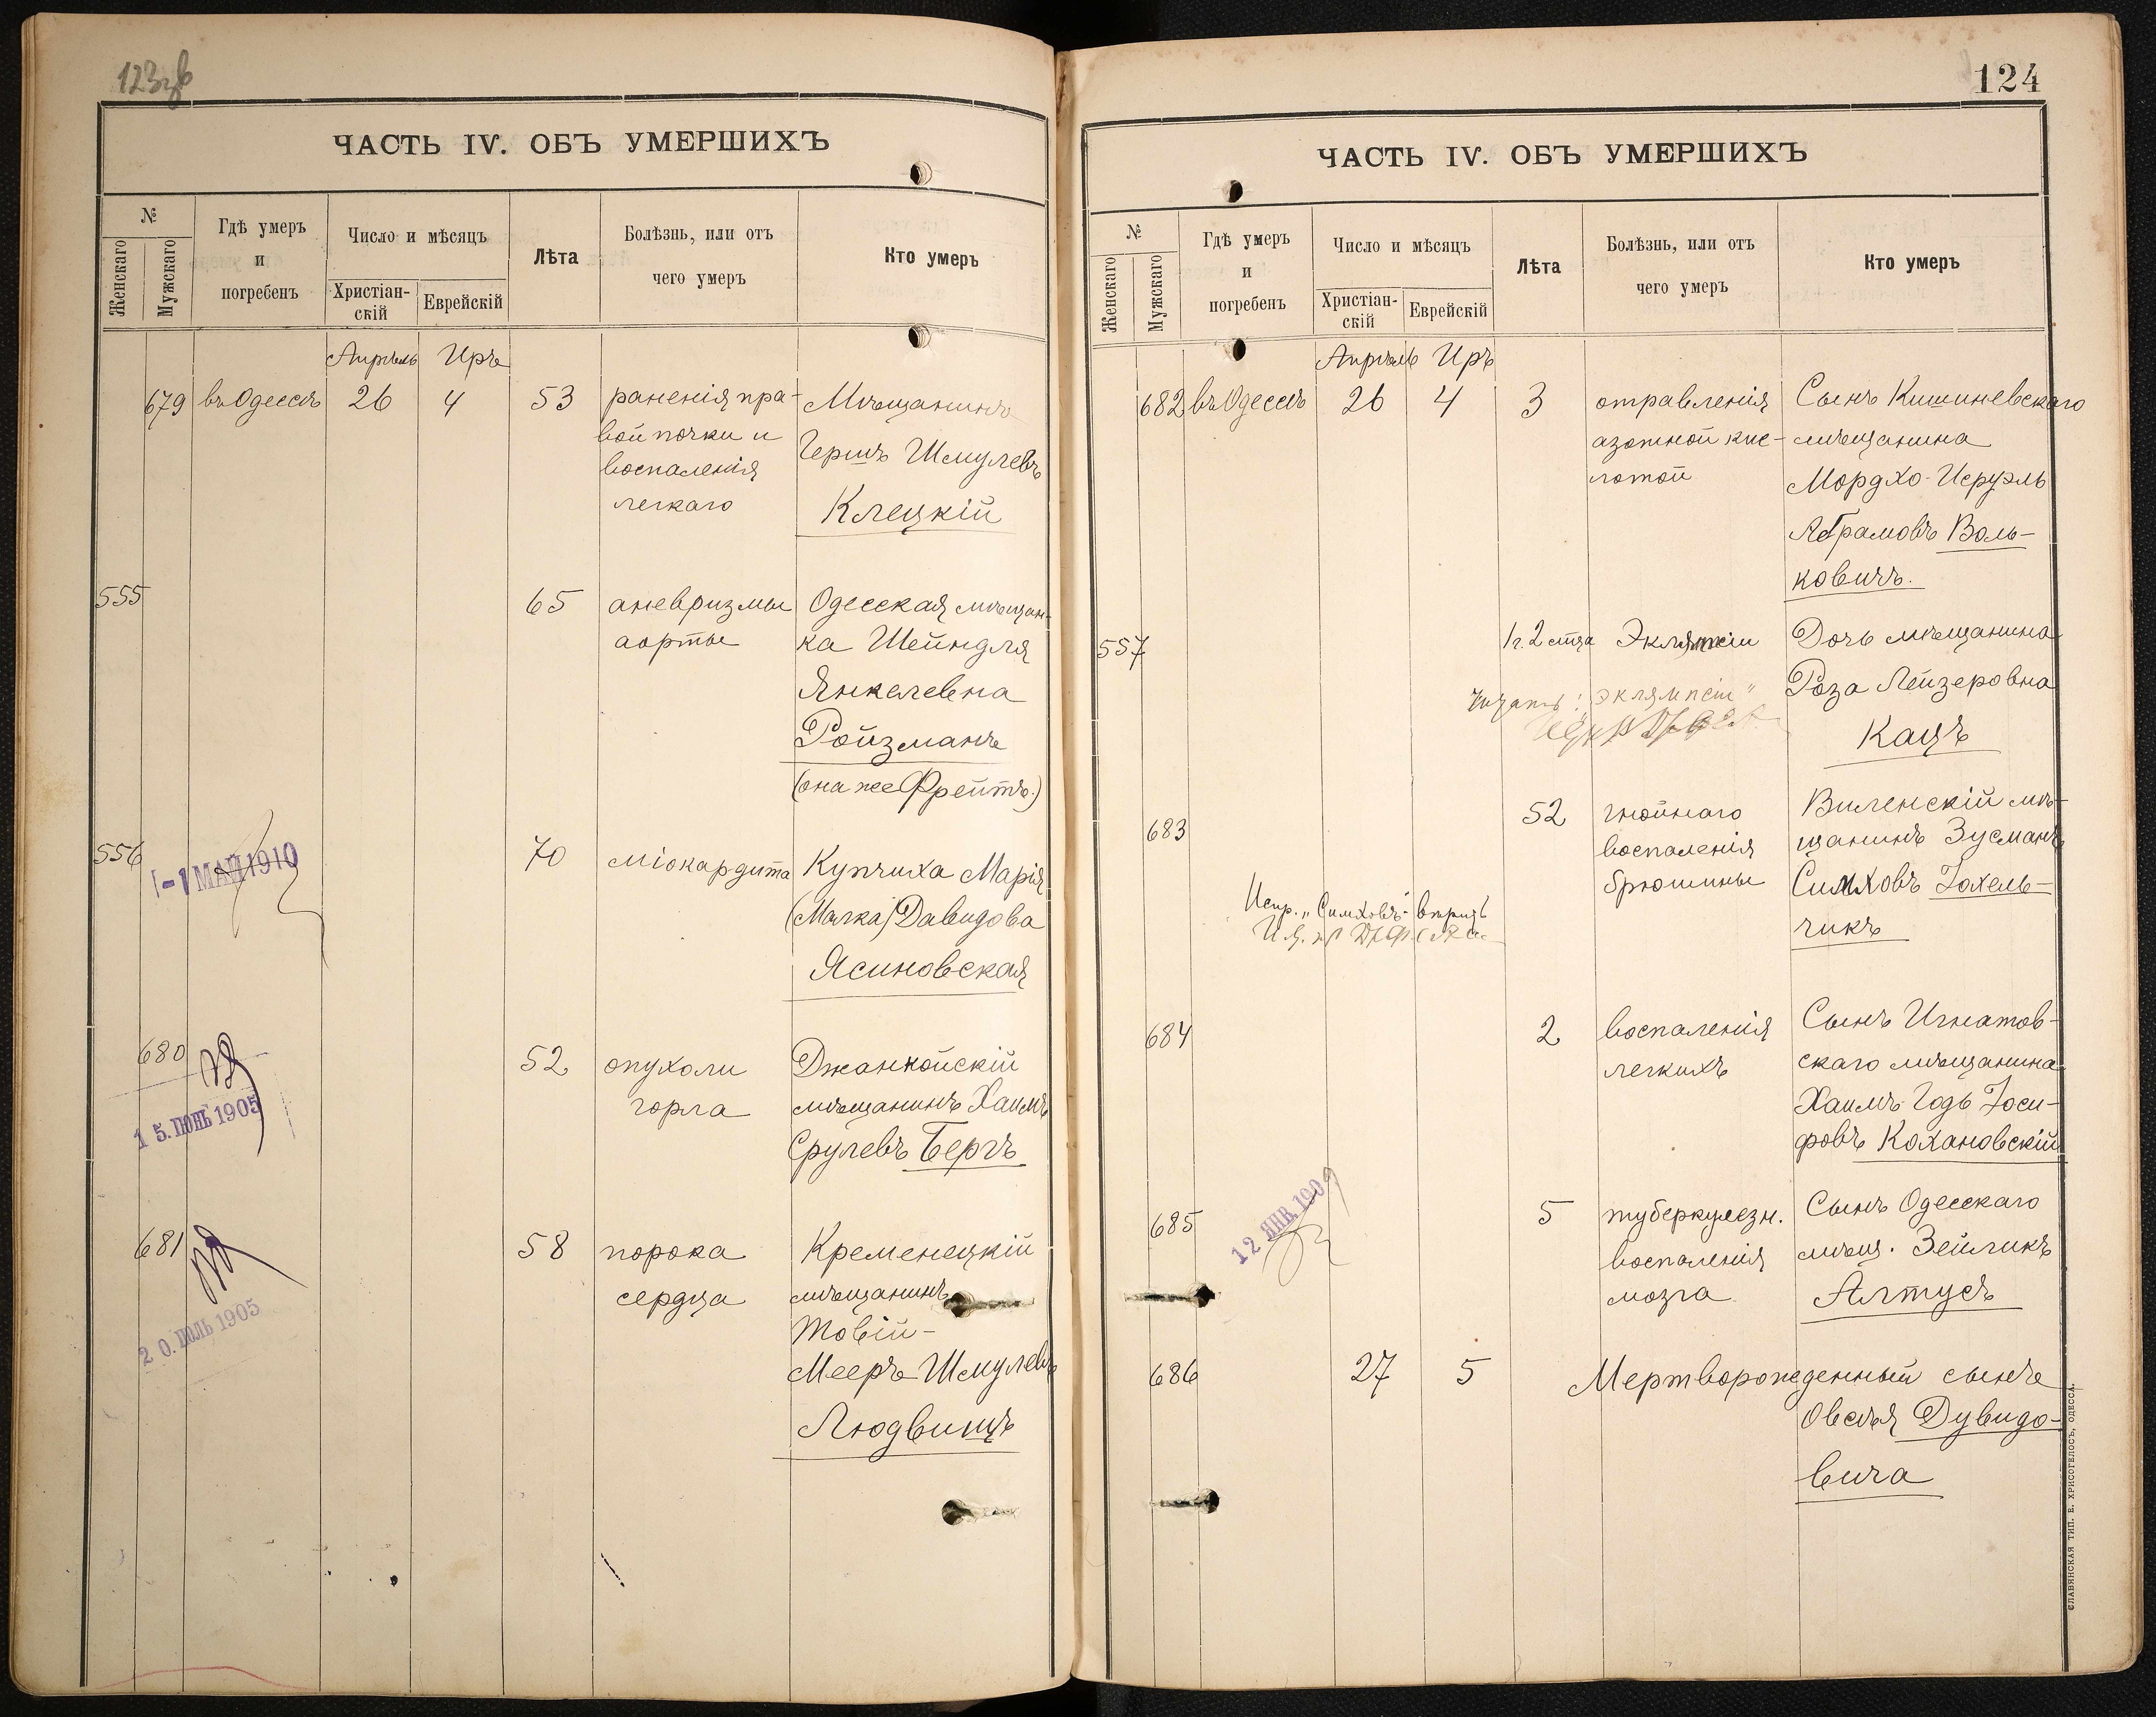 123
ЧАСТЬ IV. ОБЪ УМЕРШИХЪ
№
Женскаго
Мужскаго
Гдѣ умеръ
и
погребенъ
Число и мѣсяцъ
Христіан-
скій
Еврейскій
Лѣта
Болѣзнь, или отъ
чего умеръ
Кто умеръ
Апрѣль Иръ
679 въ Одессѣ 26 4 53 раненія пра- Мѣщанинъ
вой почки и Гершъ Шмулевъ
воспаленія
легкаго Клецкій
555 65 аневризмы Одесская мѣщан-
аорты ка Шейндля
Янкелевна
Ройзманъ
(она же Фрейтъ.)
556 70 міокардита Купчиха Марія
-1 МАЙ 1910
(Малка) Давидова
Ясиновская
680 52 опухоли Джанкойскій
горла мѣщанинъ Хаимъ
15. ІЮНЬ 1905
Срулевъ Бергъ
681 58 порока Кременецкій
сердца мѣщанинъ
20. ІЮЛЬ 1905
Товій-
Мееръ Шмулевъ
Людвипъ
124
ЧАСТЬ IV. ОБЪ УМЕРШИХЪ
№
Женскаго
Мужскаго
Гдѣ умеръ
и
погребенъ
Число и мѣсяцъ
Христіан-
скій
Еврейскій
Лѣта
Болѣзнь, или отъ
чего умеръ
Кто умеръ
Апрѣль Иръ
682 въ Одессѣ 26 4 3 отравленія Сынъ Кишиневскаго
азотной кис- мѣщанина
лотой Мордхо-Исруэль
Абрамовъ Воль-
ковичъ.
557 1 г. 2 мѣса Эклямпсіи Дочь мѣщанина
Читать: "эклямпсіи" Роза Лейзеровна
Кацъ
683 52 гнойнаго Виленскій мѣ-
воспаленія щанинъ Зусманъ
брюшины Симховъ Іохель-
чикъ
Испр. "Симховъ" вѣрить
684 2 воспаленія Сынъ Игнатов-
легкихъ скаго мѣщанина
Хаимъ-Годь Іоси-
фовъ Кохановскій
685 5 туберкулезн. Сынъ Одесскаго
воспаленія мѣщ. Зейликъ
мозга Алтусъ
12 ЯНВ. 1909
686 27 5 Мертворожденный сынъ
Овсѣя Дувидо-
вича
СЛАВЯНСКАЯ ТИП. Е. ХРИСОГЕЛОСЪ, ОДЕССА.